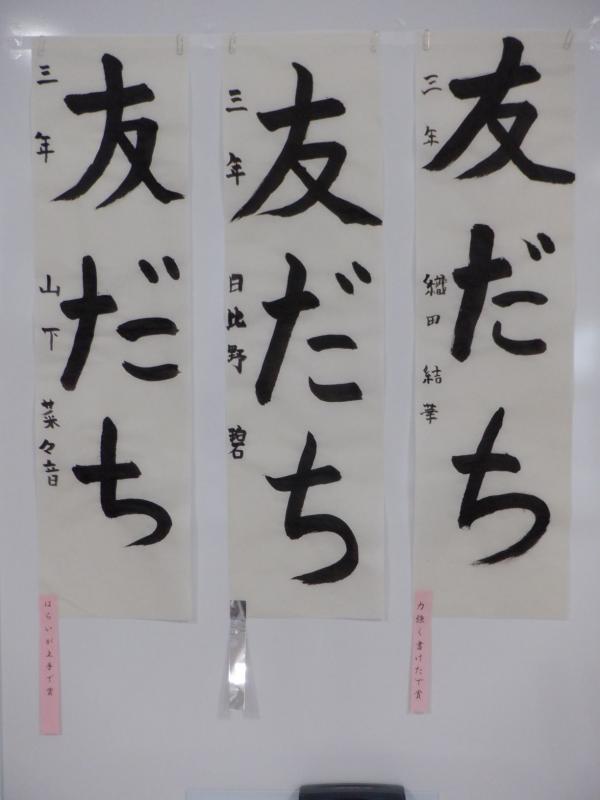 友だち
三年 織田 結華
力強く書けたで賞
友だち
三年 日比野 碧
友だち
三年 山下 菜々音
はらいが上手で賞